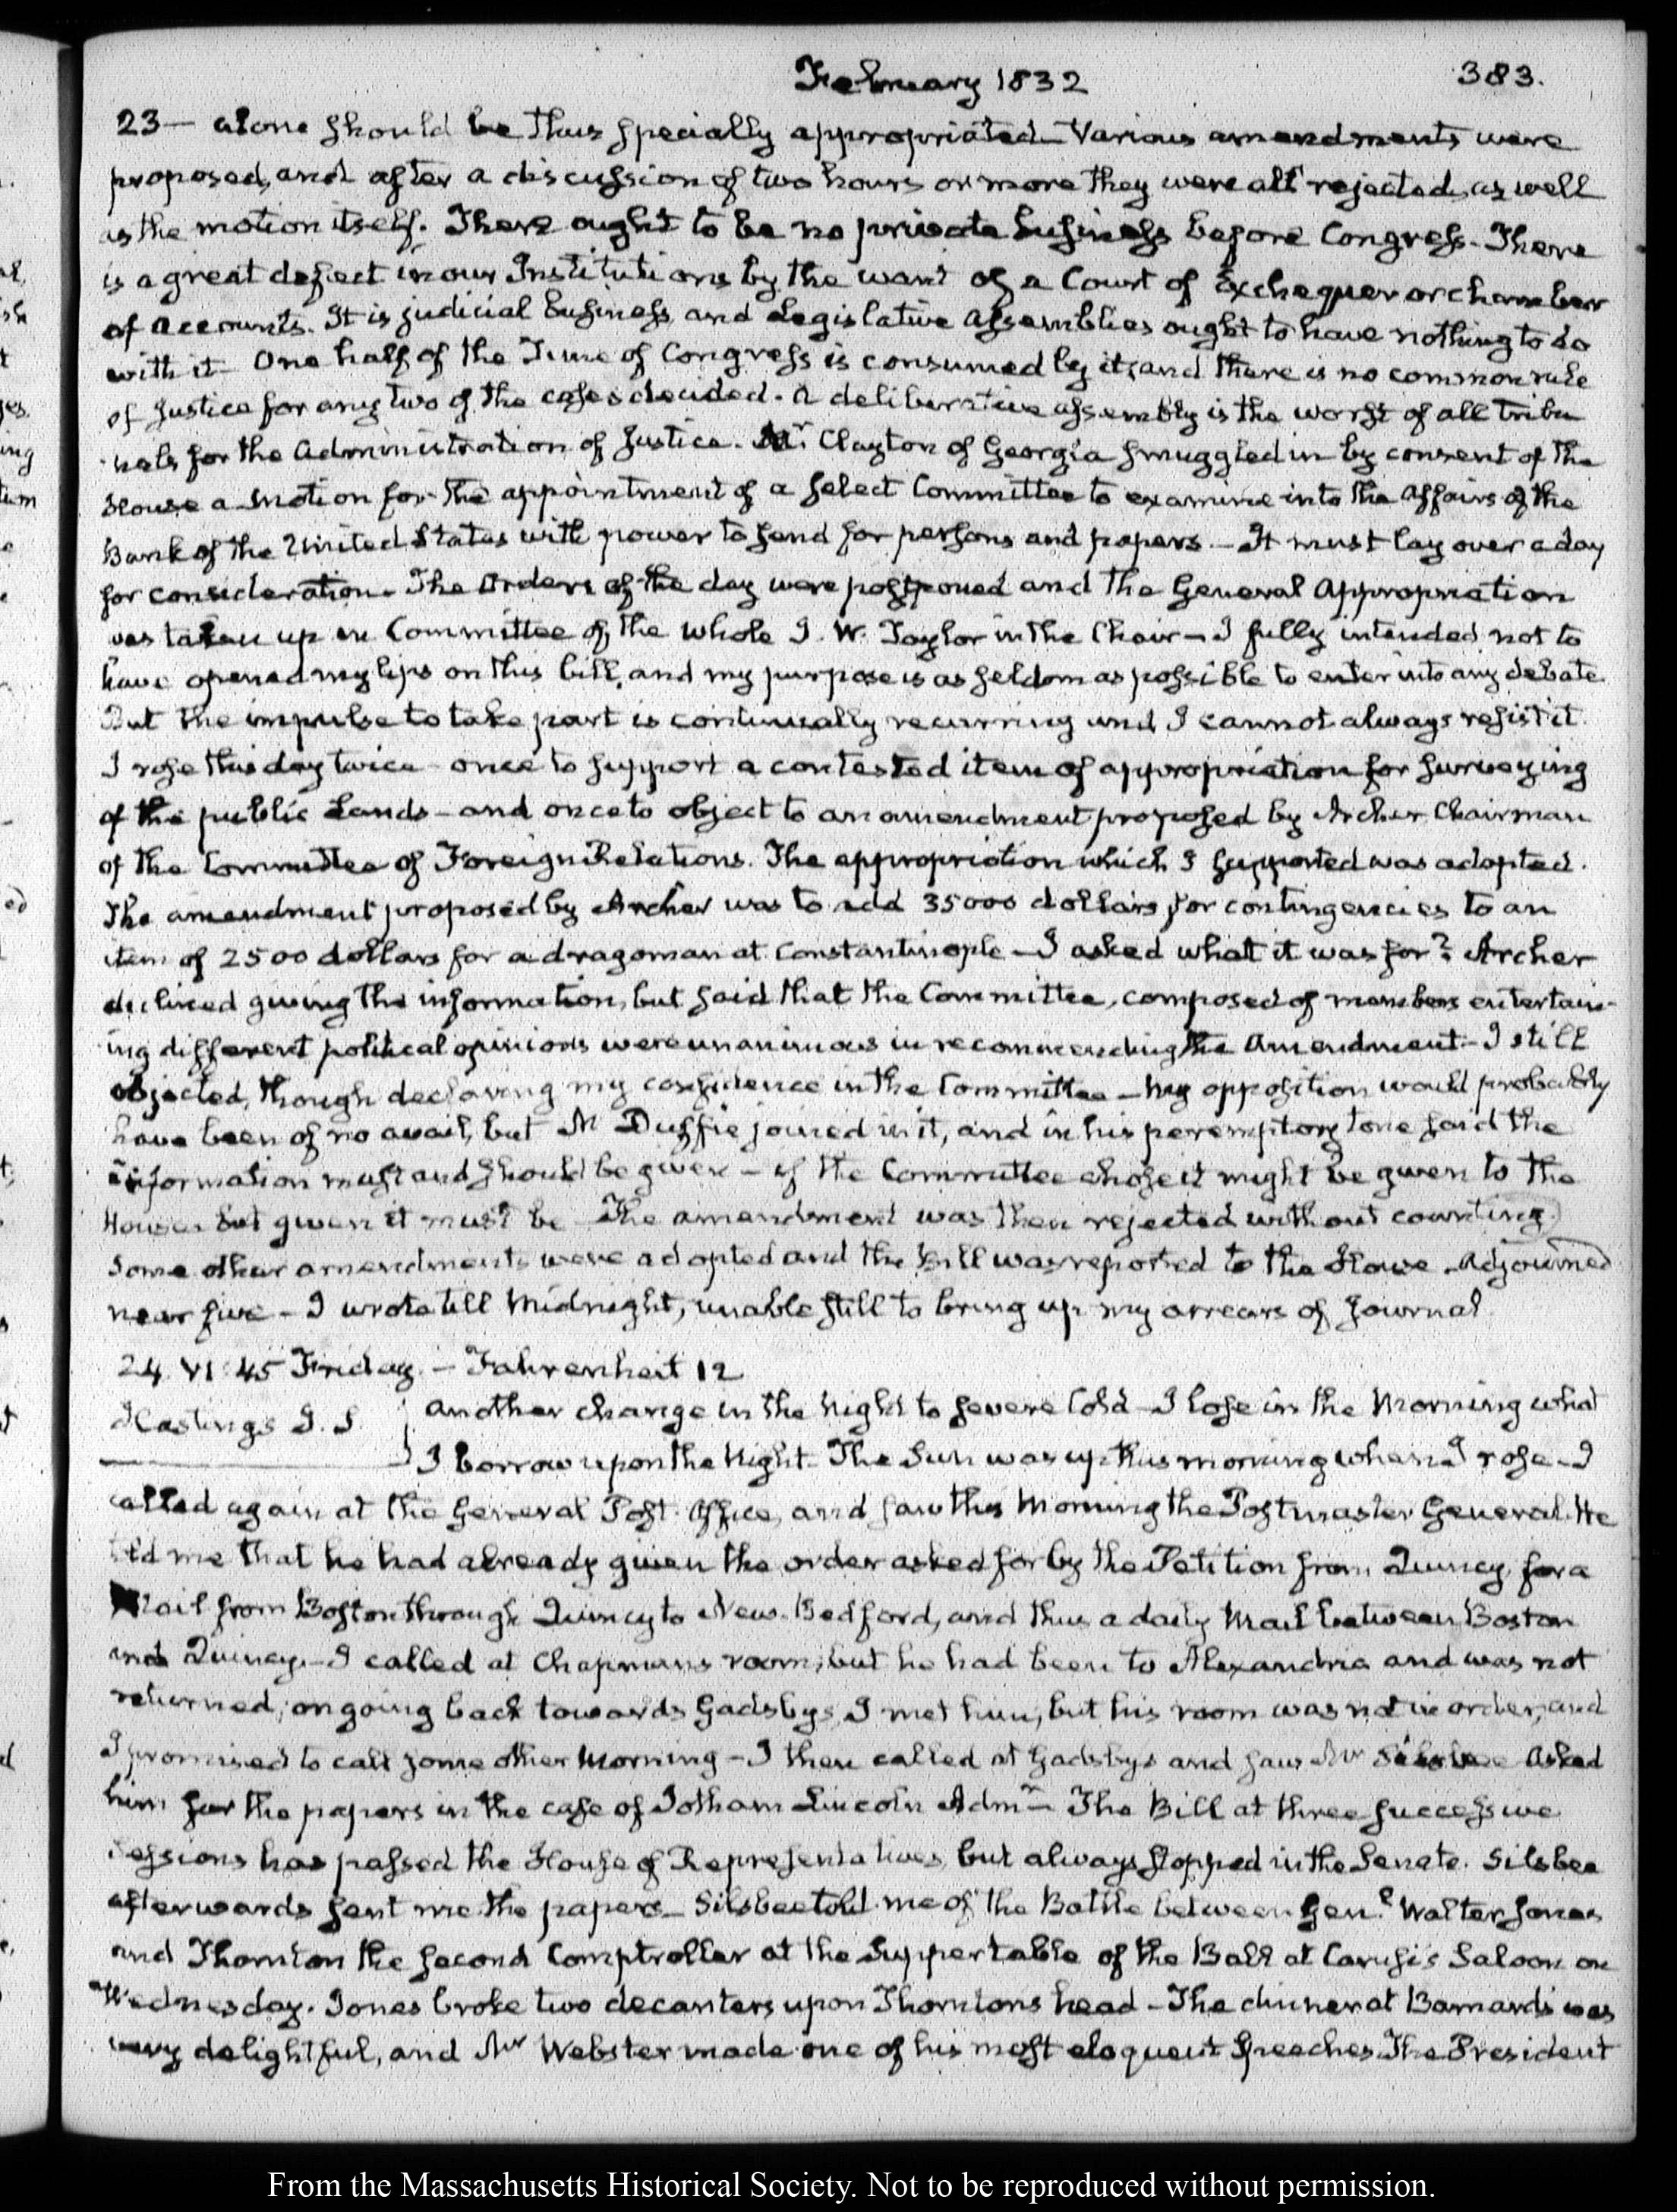 February 1832
383.
23 — alone should be thus specially appropriated – Various amendments were
proposed, and after a discussion of two hours or more they were all rejected, as well
as the motion itself. There ought to be no private business before Congress. There
is a great defect in our Institutions by the want of a Court of Exchequer or chamber
of Accounts. It is judicial business, and Legislative Assemblies ought to have nothing to do
with it – One half of the Time of Congress is consumed by it, and there is no common rule
of Justice for any two of the cases decided. A deliberative assembly is the worst of all tribu
nals for the Administration of Justice. Mr Clayton of Georgia smuggled in by consent of the
House a motion for the appointment of a select Committee to examine into the affairs of the
Bank of the United States with power to send for persons and papers – It must lay over a day
for consideration. The Orders of the day were postponed and the General Appropriation
was taken up in Committee of the whole J. W. Taylor in the Chair – I fully intended not to
have opened my lips on this bill, and my purpose is as seldom as possible to enter into any debate.
But the impulse to take part is continually recurring and I cannot always resist it.
I rose this day twice – once to support a contested item of appropriation for surveying
of the public Lands – and once to object to an amendment proposed by Archer Chairman
of the Committee of Foreign Relations. The appropriation which I supported was adopted.
The amendment proposed by Archer was to add 35000 dollars for contingencies to an
item of 2500 dollars for a dragoman at Constantinople – I asked what it was for? Archer
declined giving the information, but said that the Committee, composed of members entertain-
ing different political opinions were unanimous in recommending the Amendment – I still
objected, though declaring my confidence in the Committee – My opposition would probably
have been of no avail, but Mc Duffie joined in it, and in his peremptory tone said the
information must and should be given – if the Committee chose it might be given to the
House but given it must be – The amendment was then rejected without counting.
Some other amendments were adopted and the bill was reported to the House – Adjourned
near five – I wrote till Midnight, unable still to bring up my arrears of Journal
24. VI:45 Friday. – Fahrenheit 12
Hastings J. S.
Another change in the Night to severe Cold – I lose in the Morning what
I borrow upon the Night. The Sun was up this morning when I rose – I
called again at the General Post Office, and saw this Morning the Postmaster General. He
told me that he had already given the order asked for by the Petition from Quincy, for a
Mail from Boston through Quincy to New-Bedford, and thus a daily Mail between Boston
and Quincy. – I called at Chapman's room; but he had been to Alexandria and was not
returned; on going back towards Gadsbys I met him, but his room was not in order, and
I promised to call some other Morning – I then called at Gadsbys and saw Mr Silsbee Asked
him for the papers in the case of Jotham Lincoln Admr – The Bill at three successive
Sessions has passed the House of Representatives, but always stopped in the Senate. Silsbee
afterwards sent me the papers – Silsbee told me of the Battle between Genl Walter Jones
and Thornton the second Comptroller at the Supper table of the Ball at Carusi's Saloon on
Wednesday. Jones broke two decanters upon Thorntons head – The dinner at Barnard's was
very delightful, and Mr Webster made one of his most eloquent Speeches. The President
From the Massachusetts Historical Society. Not to be reproduced without permission.